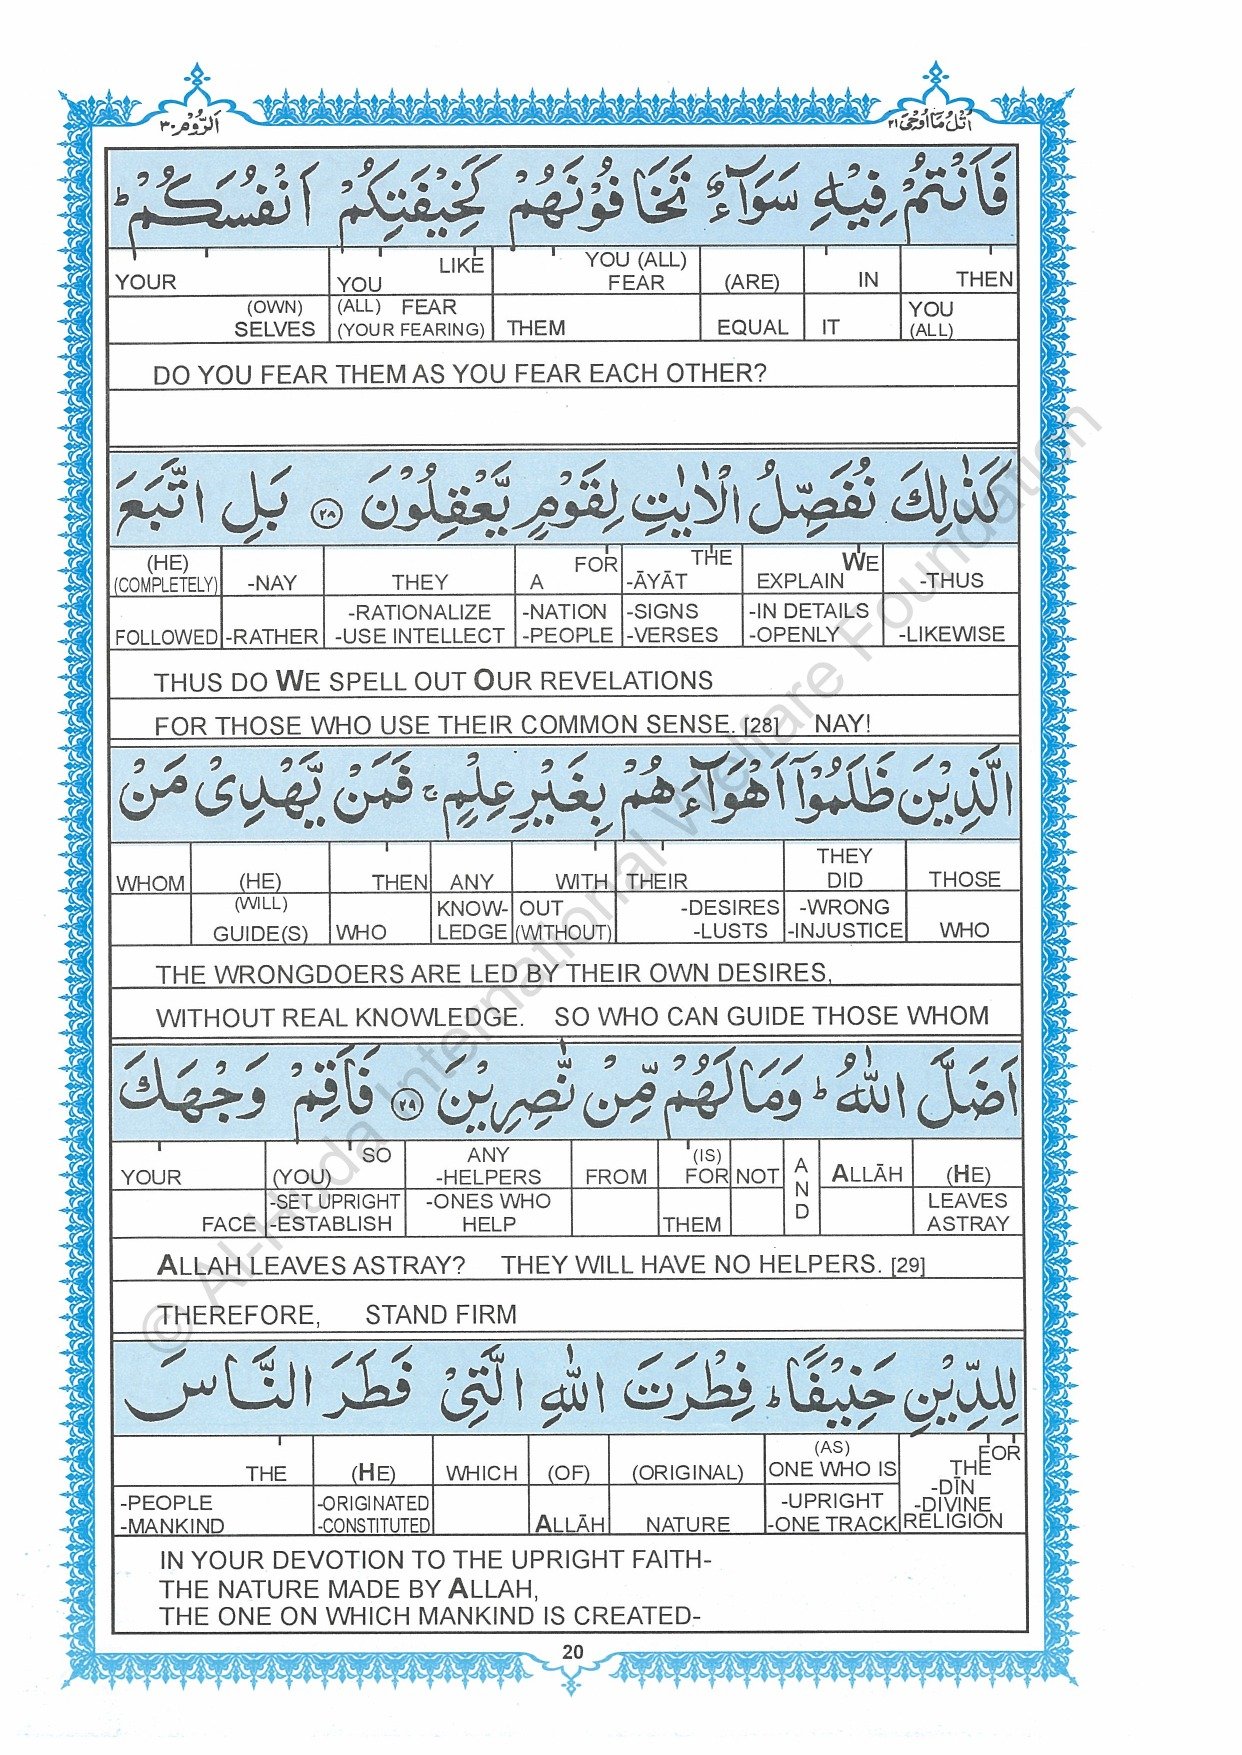 اَلرُّوْم ٣٠
اُتْلُ مَا اُوْحِیَ ٢١
فَاَنْتُمْ فِیْهِ سَوَآءٌ تَخَافُوْنَهُمْ كَخِیْفَتِكُمْ اَنْفُسَكُمْ ؕ
YOUR YOU LIKE YOU (ALL) FEAR (ARE) IN THEN
(OWN) SELVES (ALL) FEAR (YOUR FEARING) THEM EQUAL IT YOU (ALL)
DO YOU FEAR THEM AS YOU FEAR EACH OTHER?
كَذٰلِكَ نُفَصِّلُ الْاٰیٰتِ لِقَوْمٍ یَّعْقِلُوْنَ ﴿٢٨﴾ بَلِ اتَّبَعَ
(HE) (COMPLETELY) -NAY THEY FOR A THE -ĀYĀT WE EXPLAIN -THUS
FOLLOWED -RATHER -RATIONALIZE -USE INTELLECT -NATION -PEOPLE -SIGNS -VERSES -IN DETAILS -OPENLY -LIKEWISE
THUS DO WE SPELL OUT OUR REVELATIONS
FOR THOSE WHO USE THEIR COMMON SENSE. [28] NAY!
الَّذِیْنَ ظَلَمُوْۤا اَهْوَآءَهُمْ بِغَیْرِ عِلْمٍ ۚ فَمَنْ یَّهْدِیْ مَنْ
WHOM (HE) THEN ANY WITH THEIR THEY DID THOSE
(WILL) GUIDE(S) WHO KNOW-LEDGE OUT (WITHOUT) -DESIRES -LUSTS -WRONG -INJUSTICE WHO
THE WRONGDOERS ARE LED BY THEIR OWN DESIRES,
WITHOUT REAL KNOWLEDGE. SO WHO CAN GUIDE THOSE WHOM
اَضَلَّ اللّٰهُ ؕ وَمَا لَهُمْ مِّنْ نّٰصِرِیْنَ ﴿٢٩﴾ فَاَقِمْ وَجْهَكَ
YOUR SO (YOU) ANY -HELPERS FROM (IS) FOR NOT AND ALLĀH (HE)
FACE -SET UPRIGHT -ESTABLISH -ONES WHO HELP THEM LEAVES ASTRAY
ALLAH LEAVES ASTRAY? THEY WILL HAVE NO HELPERS. [29]
THEREFORE, STAND FIRM
لِلدِّیْنِ حَنِیْفًا ؕ فِطْرَتَ اللّٰهِ الَّتِیْ فَطَرَ النَّاسَ
THE (HE) WHICH (OF) (ORIGINAL) (AS) ONE WHO IS FOR THE
-PEOPLE -MANKIND -ORIGINATED -CONSTITUTED ALLĀH NATURE -UPRIGHT -ONE TRACK -DĪN -DIVINE RELIGION
IN YOUR DEVOTION TO THE UPRIGHT FAITH-
THE NATURE MADE BY ALLAH,
THE ONE ON WHICH MANKIND IS CREATED-
20
© Al-Huda International Welfare Foundation